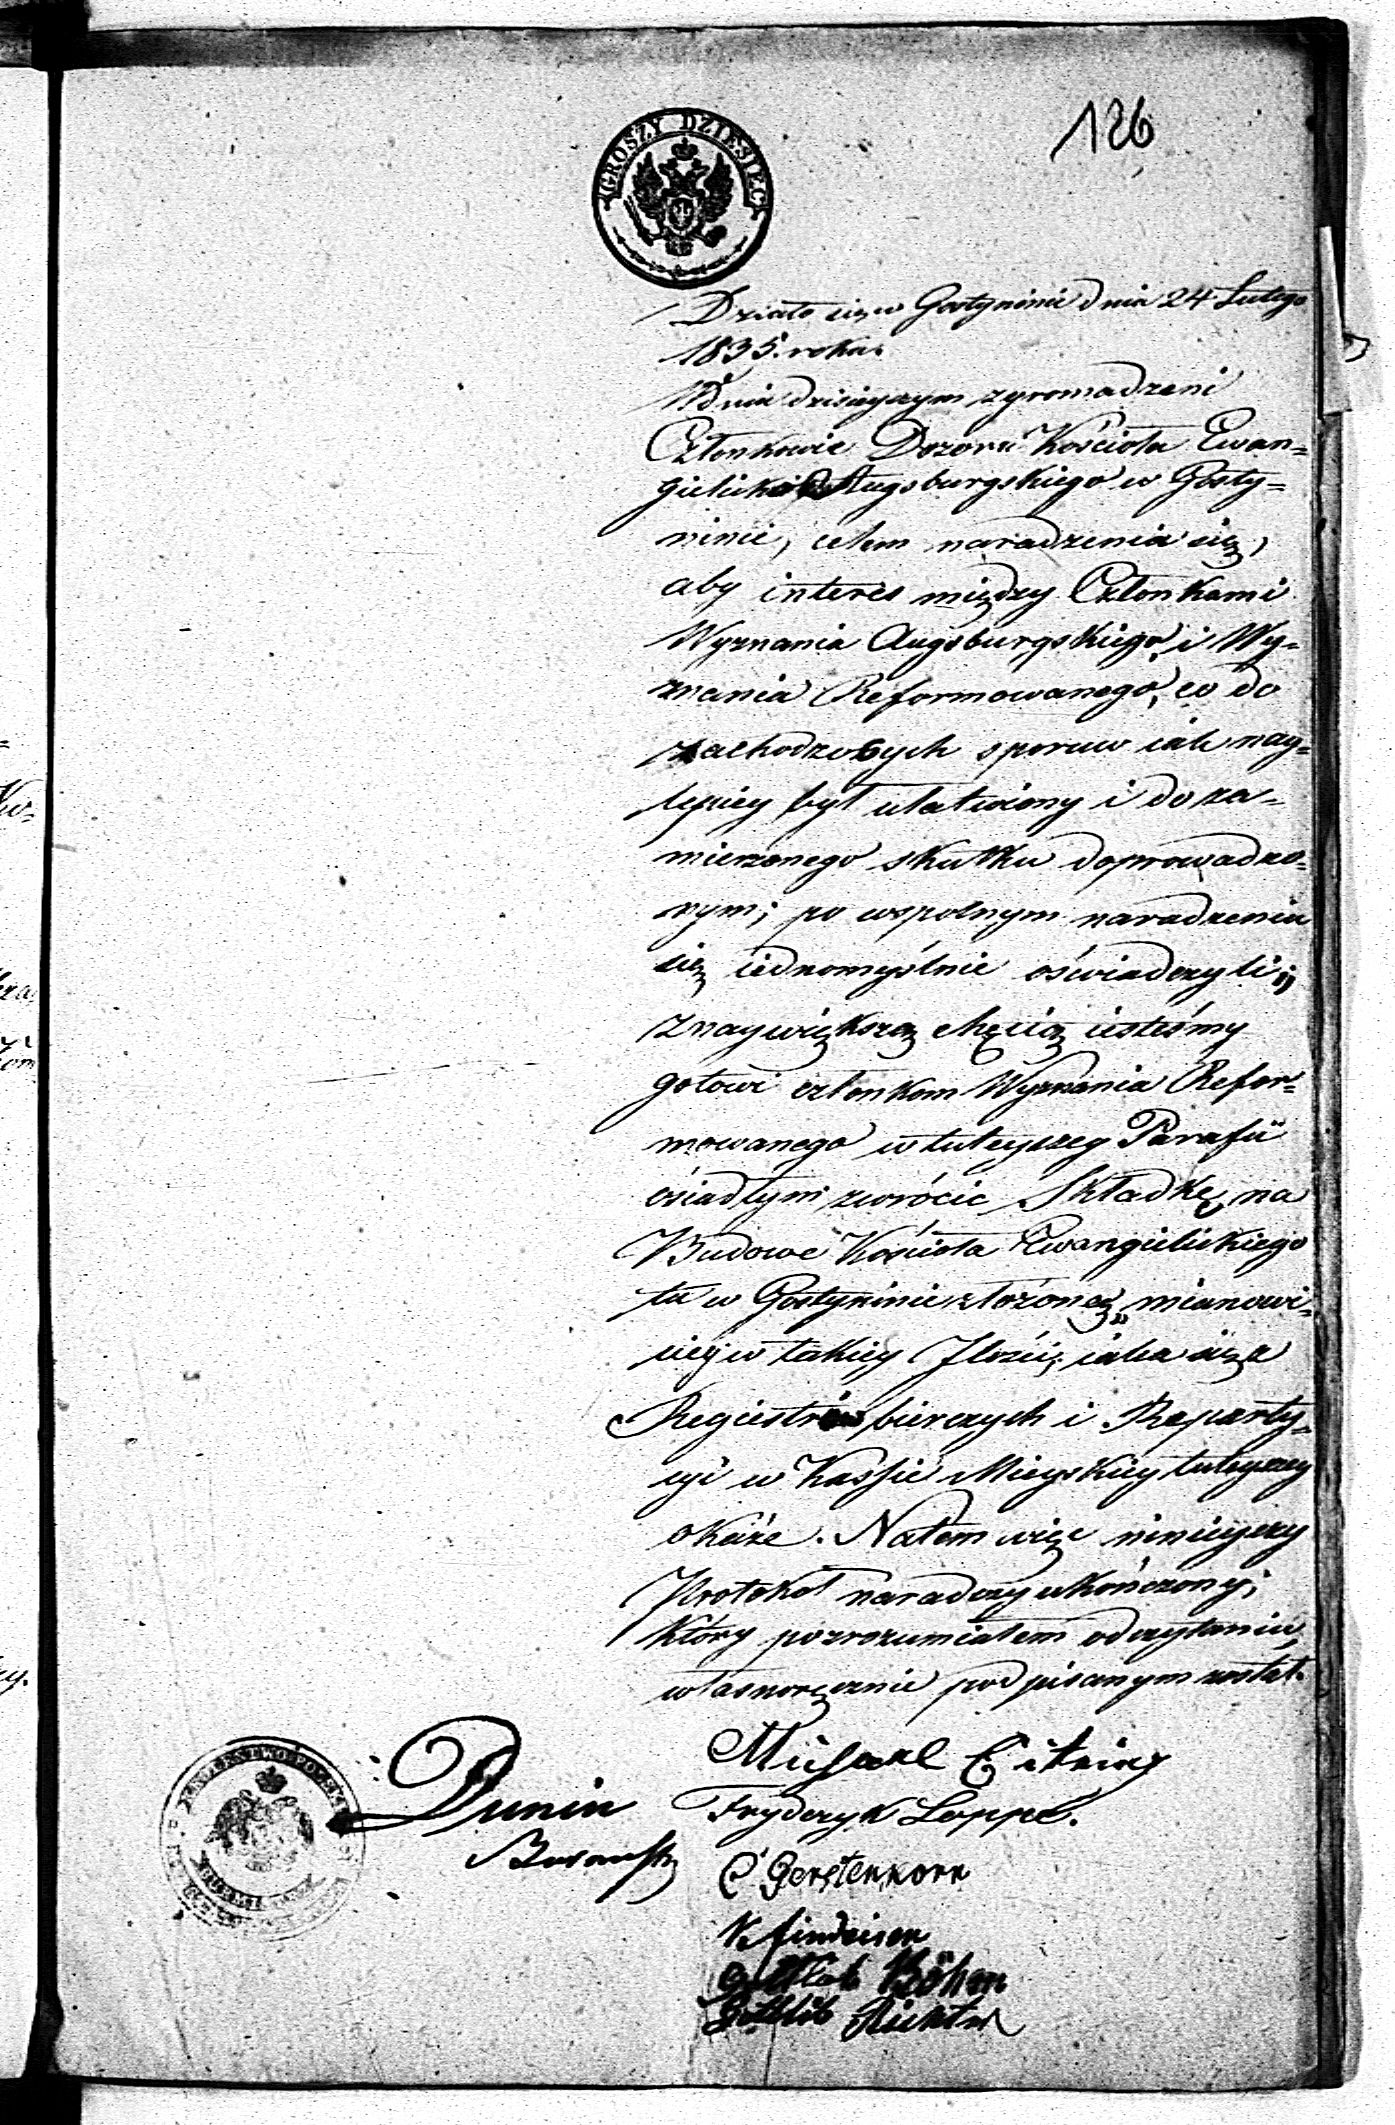 126
GROSZY DZIESIĘC
Działo się w Gostyninie dnia 24 Lutego
1835. roku.
W dniu dzisieyszym zgromadzeni
Członkowie Dozoru Kościoła Ewan=
gielicko Augsburgskiego w Gosty=
ninie, celem naradzenia się,
aby interes między Członkami
Wyznania Augsburgskiego, i Wy=
znania Reformowanego, co do
zachodzących sporuw iak nay=
lepiey był ułatwiony i do za=
mierzonego skutku doprowadzo=
nym; po wspolnym naradzeniu
się iednomyślnie oświadczyli;
z naywiększą chęcią iesteśmy
gotowi członkom Wyznania Refor=
mowanego w tuteyszey Parafii
osiadłym zwrócic Składkę na
Budowe Kościoła Ewangielickiego
tu w Gostyninie złożoną, mianowi=
ciey w takiey Jlości, iaka się z
Regiestrów bierczych i Reparty=
cyi w Kassie Mieyskiey tuteyszey
okaże. Natem więc ninieyszy
Protokoł naradczy ukończony,
który po zrozumiałem odczytaniu,
własnoręcznie podpisanym został.
Michael Citring
Dunin
Fryderyk Loppe.
C Gerstenkorn
K. findeisen
Gottlob Böhm
Gottlib Richter